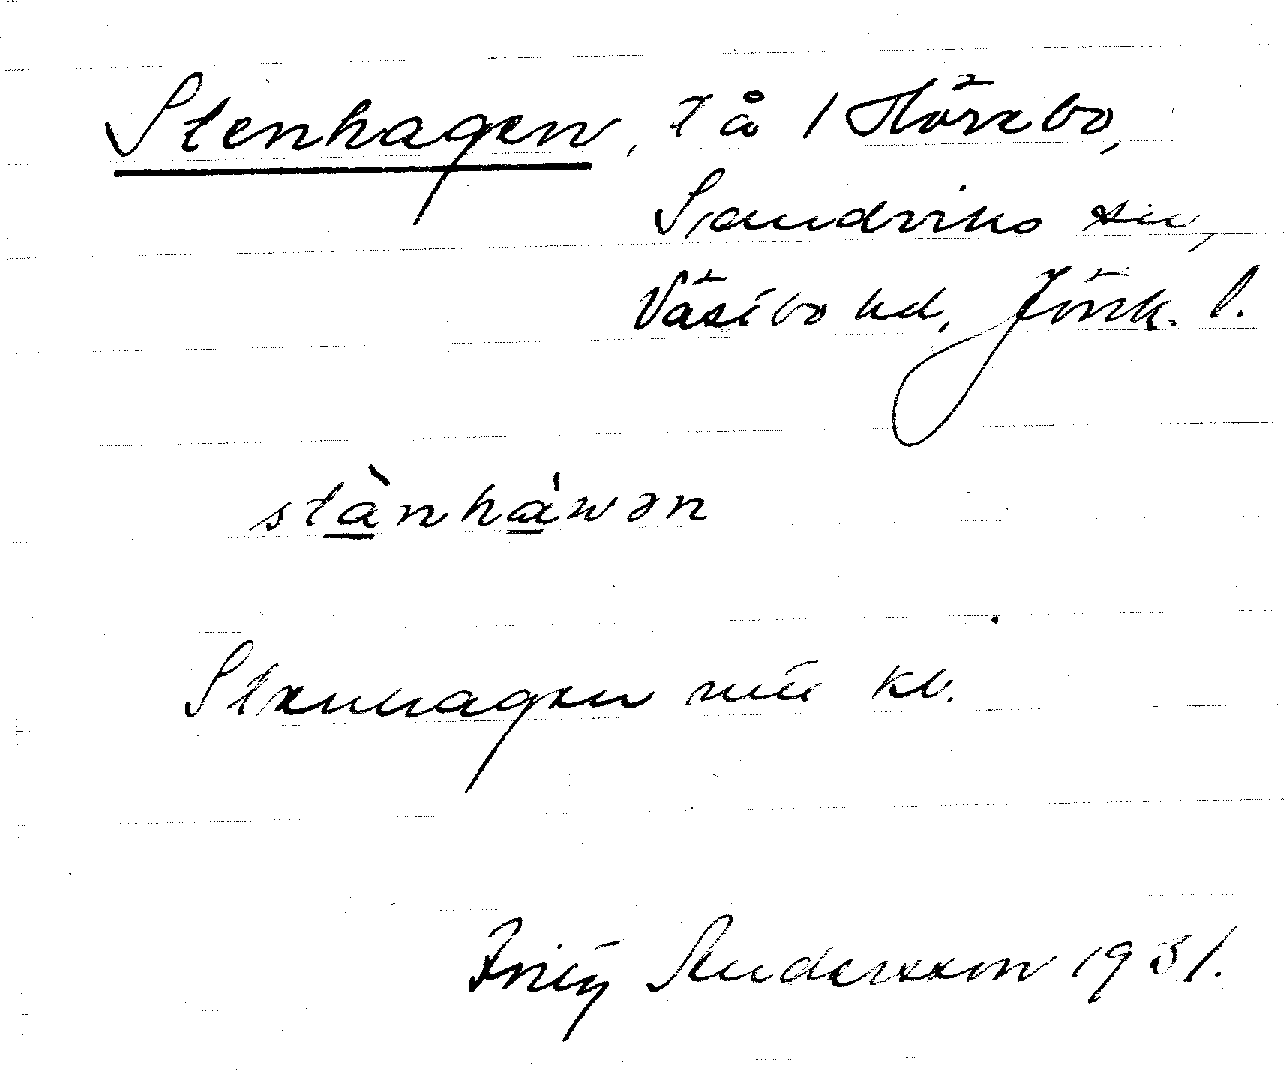 Stenhagen, I å 1 Hörebo,
Sandviks sn,
Västbo hd, Jönk. l.
stànháwən
Stenhagen kb.
Fritz Andersson 1931.